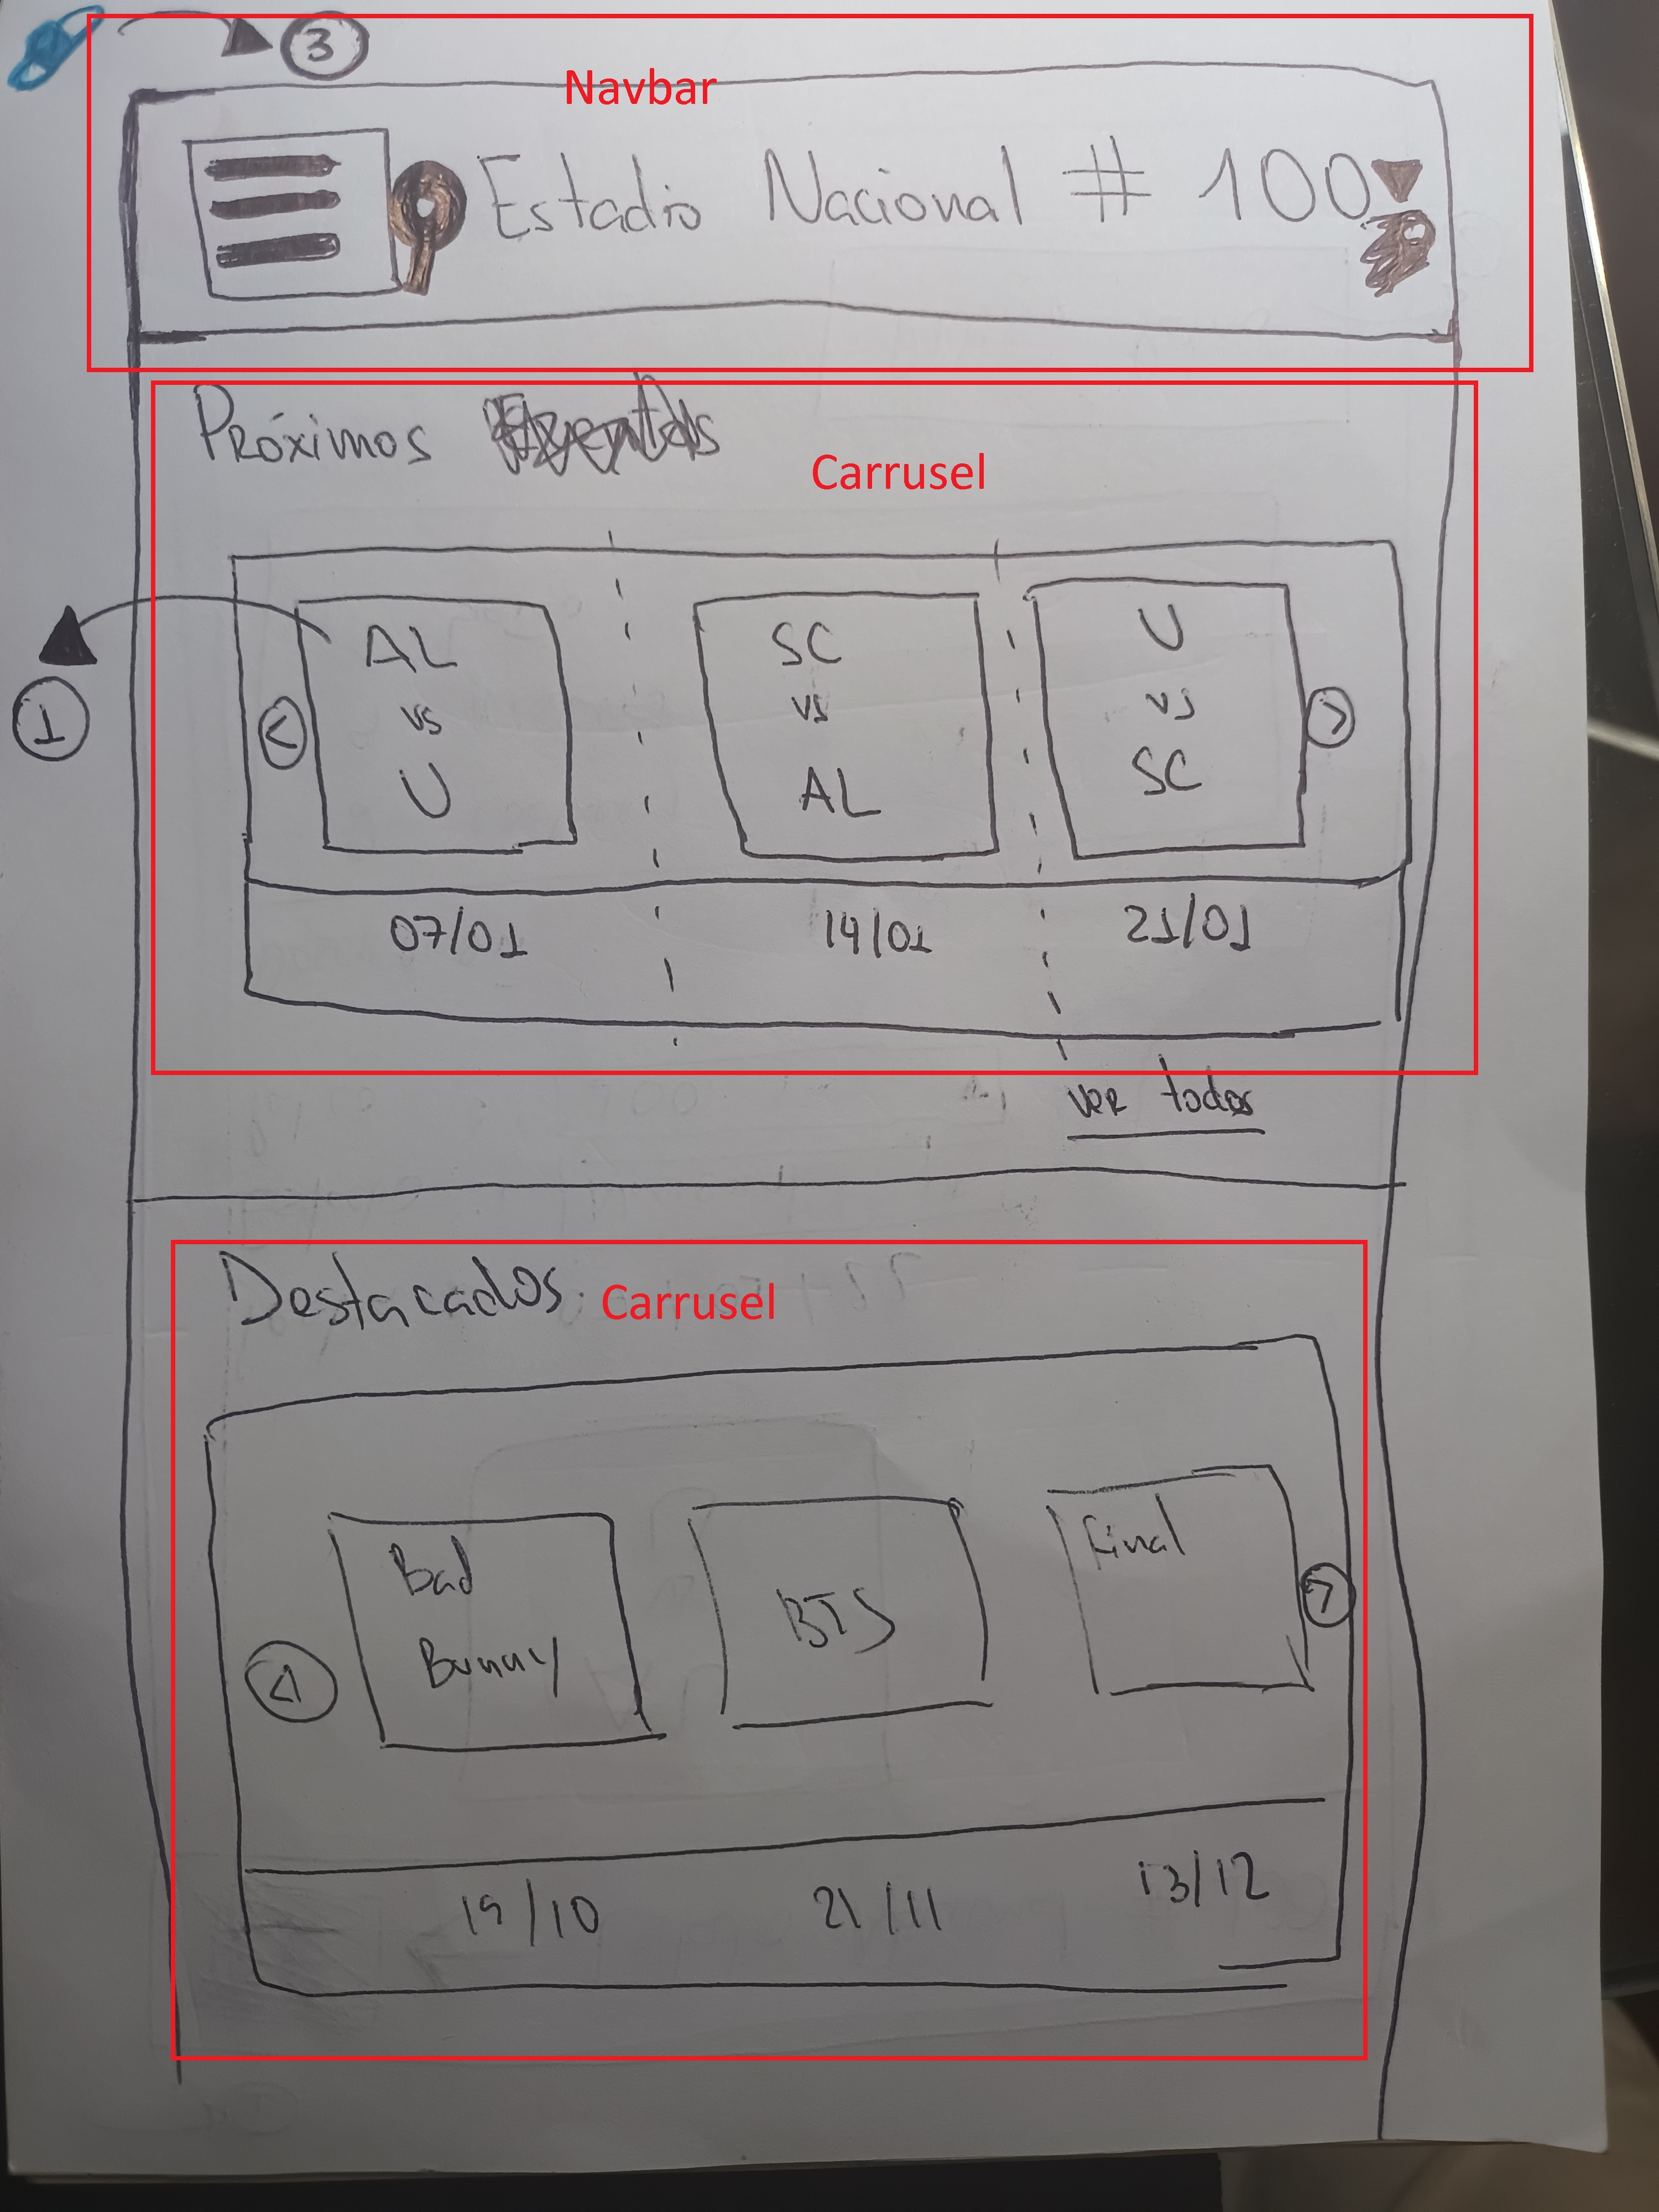 3
Navbar
Estadio Nacional # 100
Próximos
Carrusel
AL vs U
SC vs AL
U vs SC
<
>
1
07/01
14/01
21/01
ver todos
Destacados
Carrusel
Bad Bunny
BTS
Final
19/10
21/11
13/12